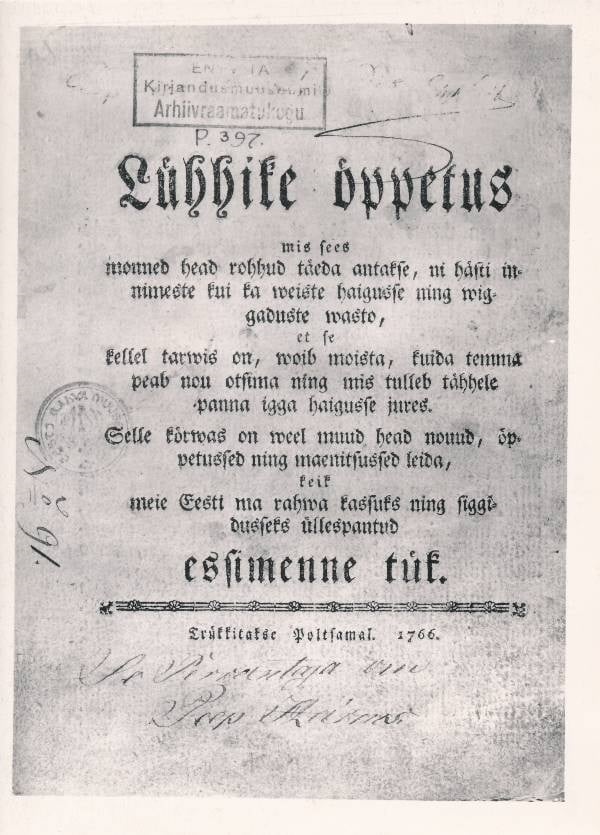 Kirjandusmuuseumi
Arhiivraamatukogu
P. 397.
Lühhike öppetus
mis sees
monned head rohhud täeda antakse, ni hästi in-
nimeste kui ka weiste haigusse ning wig-
gaduste wasto,
et se
kellel tarwis on, woib moista, kuida temma
peab nou otsima ning mis tulleb tähhele
panna igga haigusse jures.
Selle körwas on weel muud head nouud, öp-
petussed ning maenitsussed leida,
keik
meie Eesti ma rahwa kassuks ning siggi-
dusseks üllespantud
essimenne tük.
Trükkitakse Poltsamal. 1766.